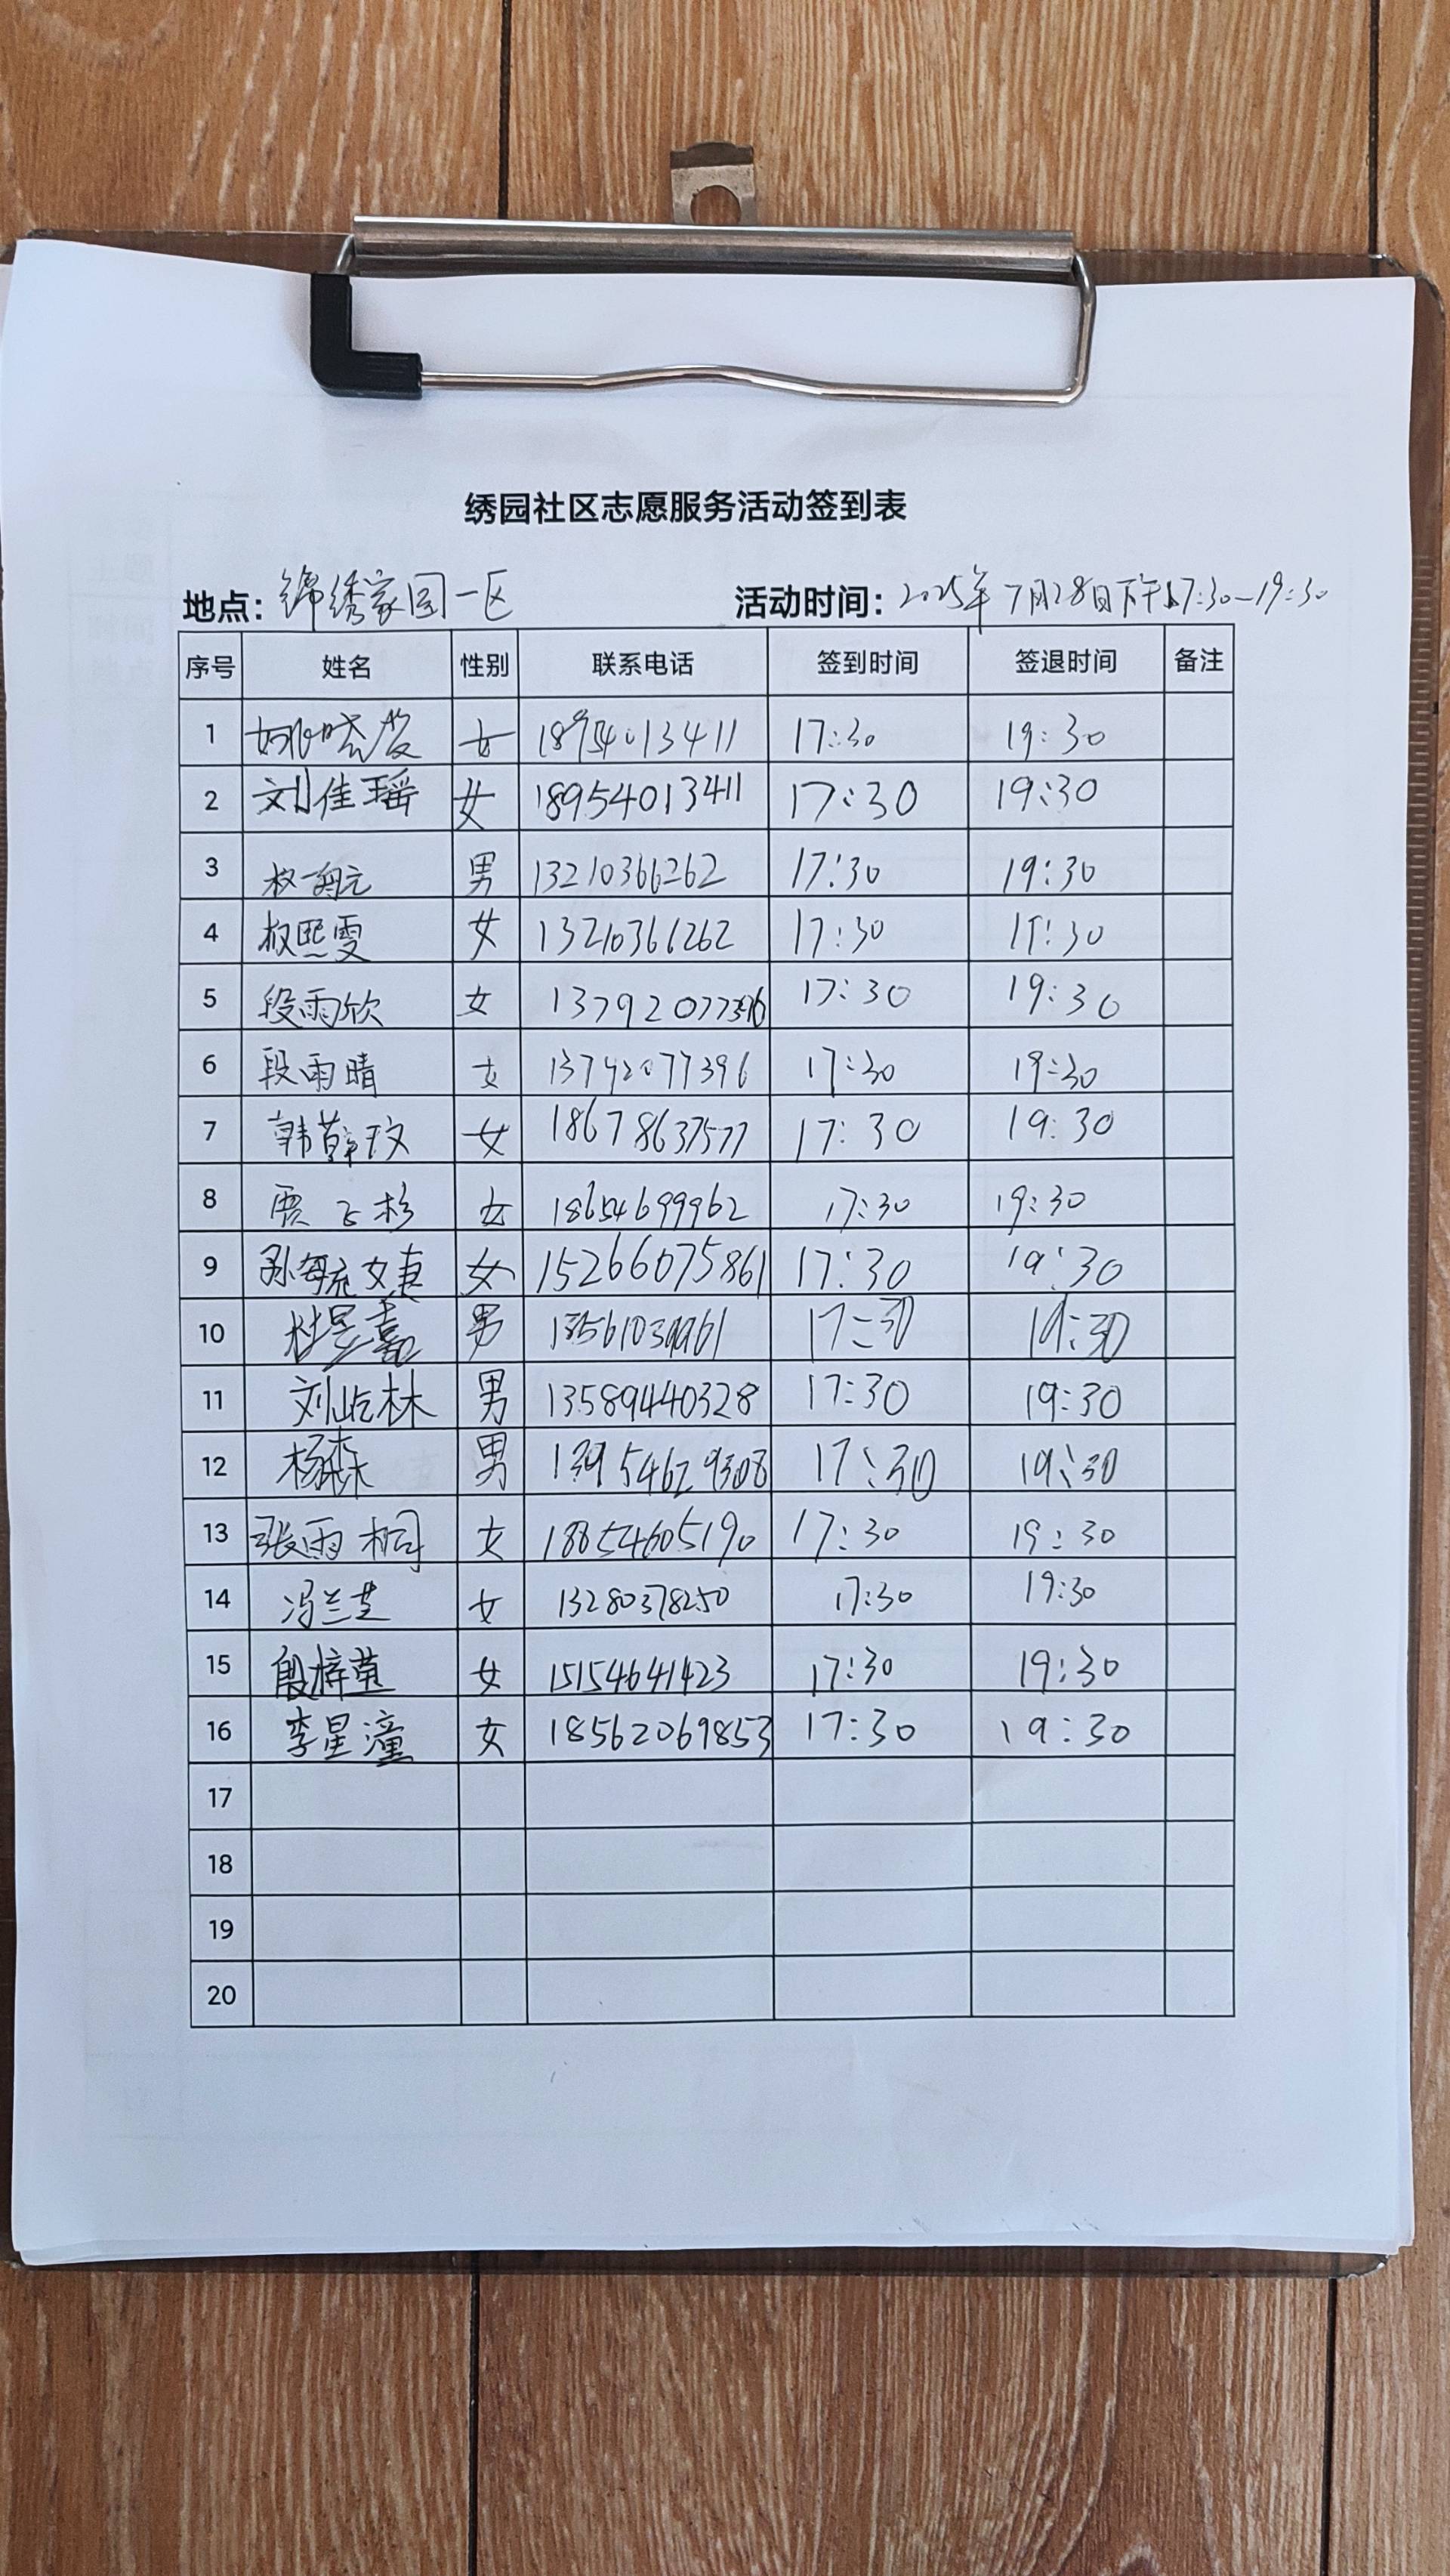 绣园社区志愿服务活动签到表
地点：锦绣家园一区 活动时间：2025年7月28日下午17:30-19:30
序号 姓名 性别 联系电话 签到时间 签退时间 备注
1 女 18954013411 17:30 19:30
2 刘佳瑶 女 18954013411 17:30 19:30
3 权 航 男 13210366262 17:30 19:30
4 权熙雯 女 13210366262 17:30 19:30
5 段雨欣 女 13792077396 17:30 19:30
6 段雨晴 女 13792077396 17:30 19:30
7 韩 玟 女 18678637577 17:30 19:30
8 贾飞杉 女 18654699962 17:30 19:30
9 孙毓婕 女 15266075861 17:30 19:30
10 杜昱嘉 男 17:30 19:30
11 刘屹林 男 13589440328 17:30 19:30
12 杨森 男 13954629308 17:30 19:30
13 张雨桐 女 18854605190 17:30 19:30
14 冯兰芝 女 13280378250 17:30 19:30
15 殷梓萱 女 15154641423 17:30 19:30
16 李星潼 女 18562069853 17:30 19:30
17
18
19
20